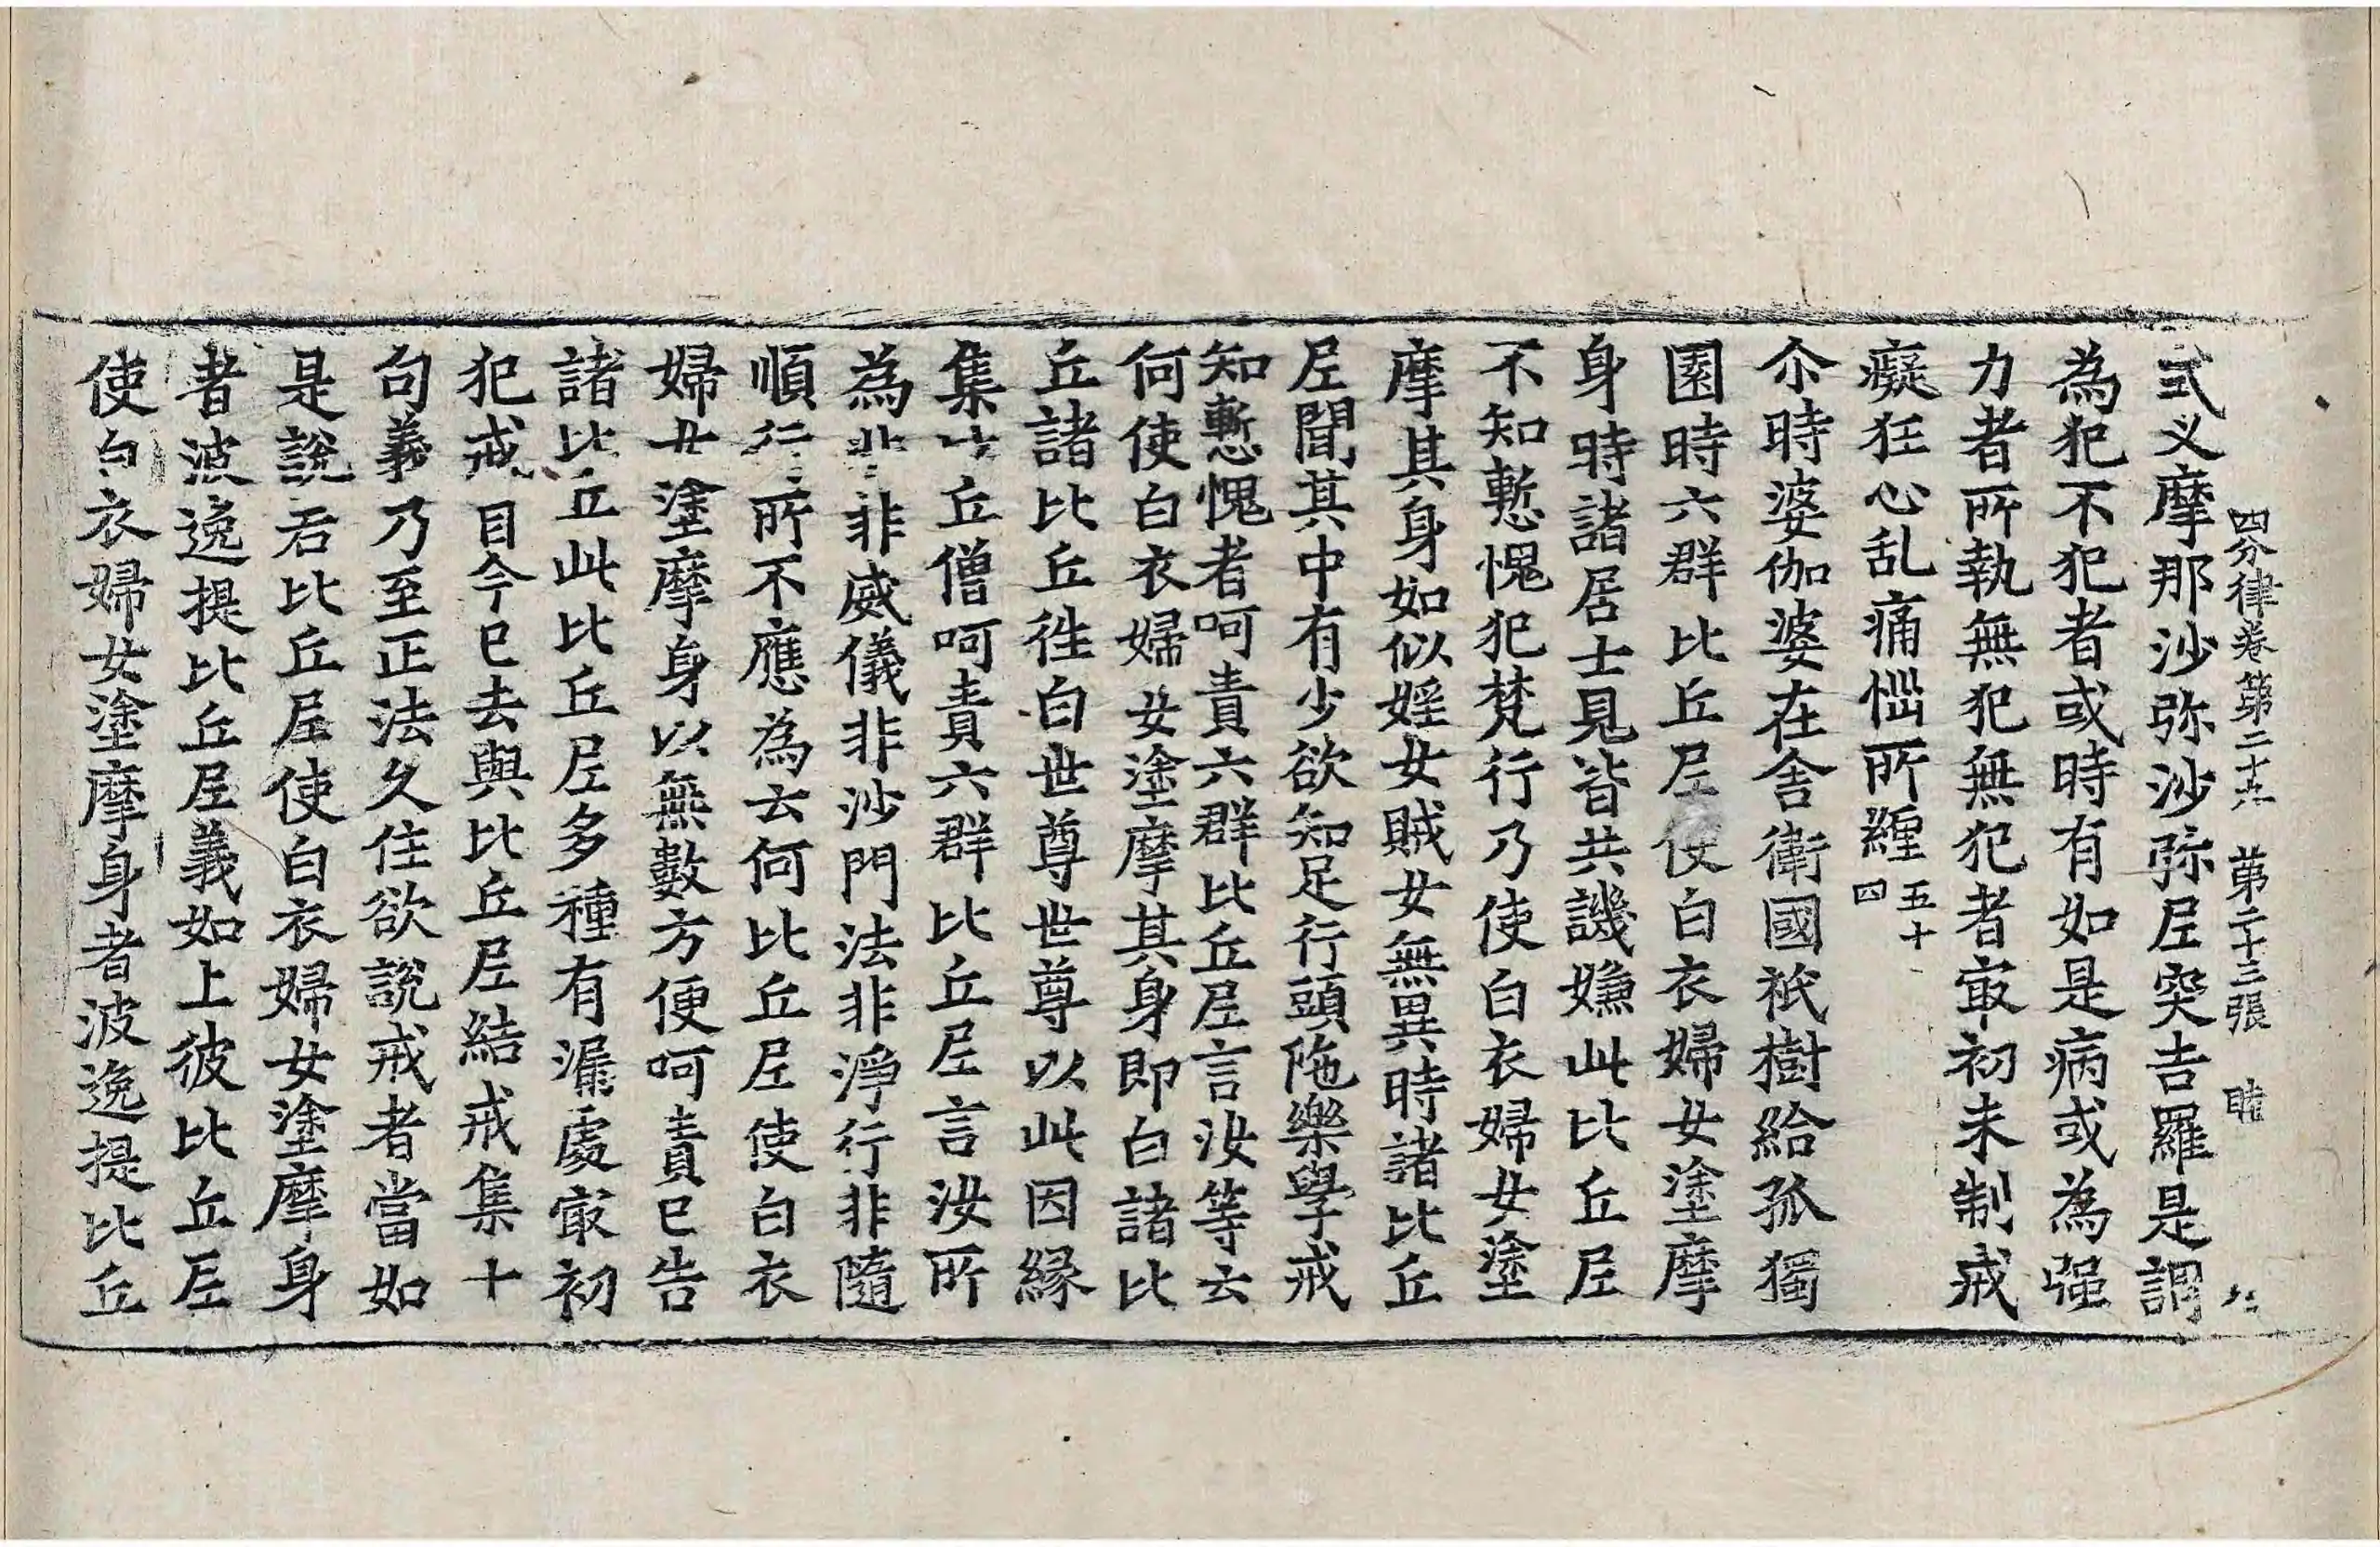 四分律卷第二十九 第二十三張 睦
式叉摩那沙弥沙弥尼突吉羅是謂
為犯不犯者或時有如是病或為强
力者所執無犯無犯者㝡初未制戒
癡狂心乱痛惱所纏 五十四
尒時婆伽婆在舍衛國祇樹給孤獨
園時六群比丘尼使白衣婦女塗摩
身時諸居士見皆共譏嫌此比丘尼
不知慙愧犯梵行乃使白衣婦女塗
摩其身如似婬女賊女無異時諸比丘
尼聞其中有少欲知足行頭陁樂學戒
知慙愧者呵責六群比丘尼言汝等云
何使白衣婦女塗摩其身即白諸比
丘諸比丘徃白世尊世尊以此因緣
集比丘僧呵責六群比丘尼言汝所
為非非威儀非沙門法非淨行非隨
順行所不應為云何比丘尼使白衣
婦女塗摩身以無數方便呵責已告
諸比丘此比丘尼多種有漏處㝡初
犯戒自今已去與比丘尼結戒集十
句義乃至正法久住欲說戒者當如
是說若比丘尼使白衣婦女塗摩身
者波逸提比丘尼義如上彼比丘尼
使白衣婦女塗摩身者波逸提比丘